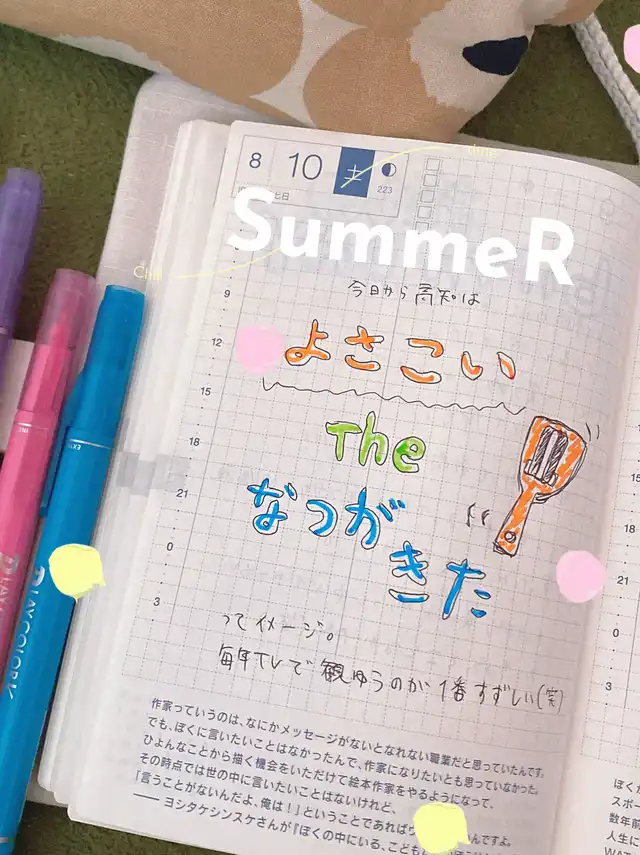 8 10 土
223
time
SummeR
Chill
今日から高知は
9
よさこい
12
15
The
18
なつが
21
きた
0
3
って イメージ。
毎年TVで 観ゆうのが 1番 すずしい(笑)
作家っていうのは、なにかメッセージがないとなれない職業だと思っていたんです。
でも、ぼくに言いたいことはなかったんで、作家になりたいとも思っていなかった。
ひょんなことから描く機会をいただけて絵本作家をやるようになって、
その時点では世の中に言いたいことはないけれど、
「言うことがないんだよ、俺は!」ということであれば
んですよ。
── ヨシタケシンスケさんが『ぼくの中にいる、こども
PLAYCOLOR K
EXT
15
18
21
0
3
ぼくが
スポー
数年前
人生に